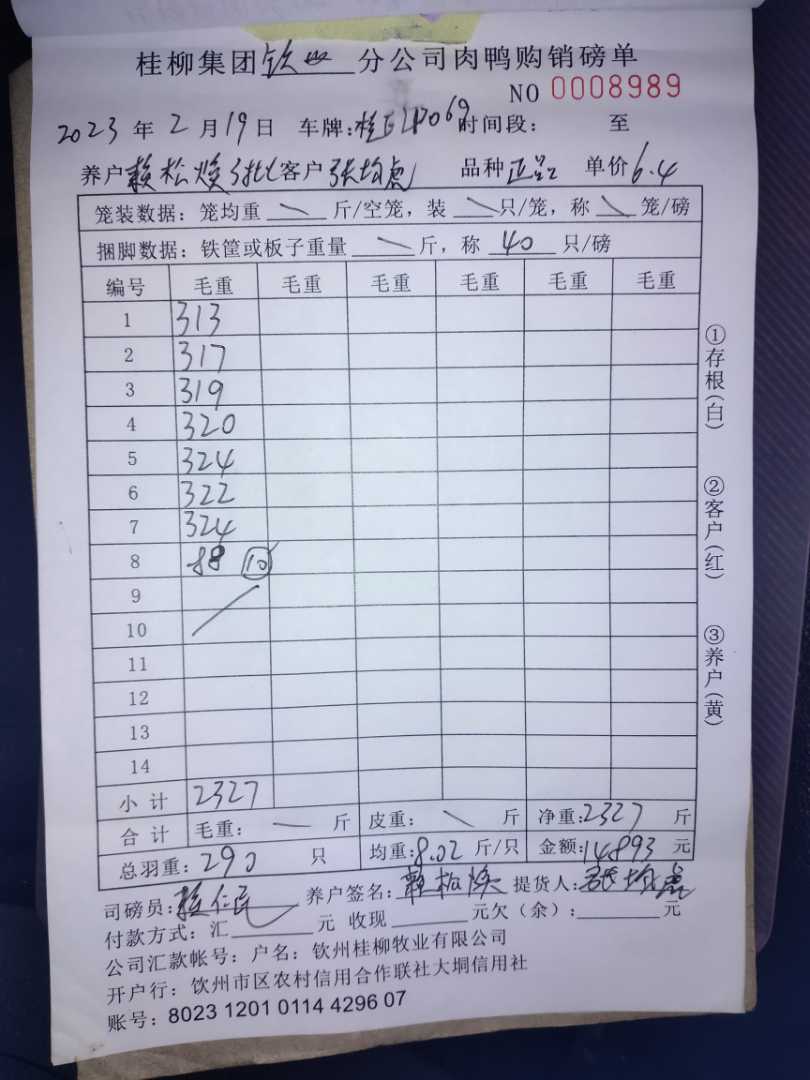 桂柳集团钦州分公司肉鸭购销磅单
NO 0008989
2023年2月19日 车牌: 时间段: 至
养户赖松焕 客户张均虎 品种正品 单价6.4
笼装数据:笼均重 \ 斤/空笼,装 \ 只/笼,称 \ 笼/磅
捆脚数据:铁筐或板子重量 \ 斤,称 40 只/磅
编号 毛重 毛重 毛重 毛重 毛重 毛重
1 313
2 317
3 319
4 320
5 324
6 322
7 324
8 88 10
9
10
11
12
13
14
小计 2327
合计 毛重: — 斤 皮重: \ 斤 净重:2327 斤
总羽重:290 只 均重:8.02 斤/只 金额:14893 元
司磅员: 养户签名:赖松焕 提货人:张均虎
付款方式:汇 元 收现 元欠(余): 元
公司汇款帐号:户名:钦州桂柳牧业有限公司
开户行:钦州市区农村信用合作联社大垌信用社
账号:8023 1201 0114 4296 07
①存根(白)
②客户(红)
③养户(黄)